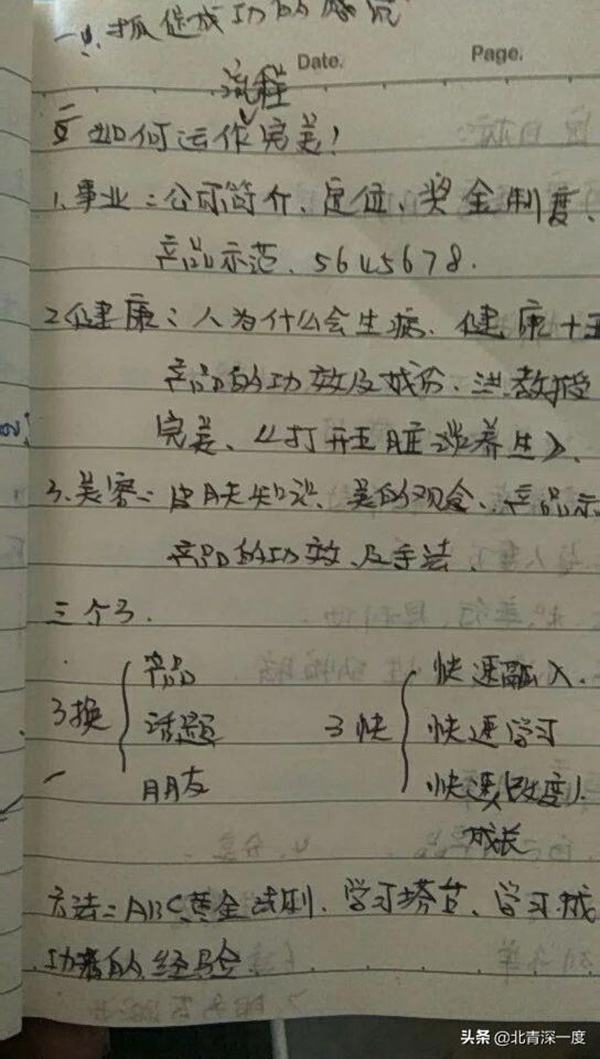 Date.
Page.
流程
如何运作完美!
1.事业:公司简介、定位、奖金制度、
产品示范、5645678.
2.健康:人为什么会生病、健康十五
产品的功效及成份、洪教授
完美、《打开五脏谈养生》、
3.美容:皮肤知识、美的观念、产品示
产品的功效、及手法、
三个3.
3换
产品
话题
朋友
3快
快速融入.
快速学习
快速改变).
成长
方法:ABC黄金法则、学习搭台、学习成
功者的经验
头条 @北青深一度